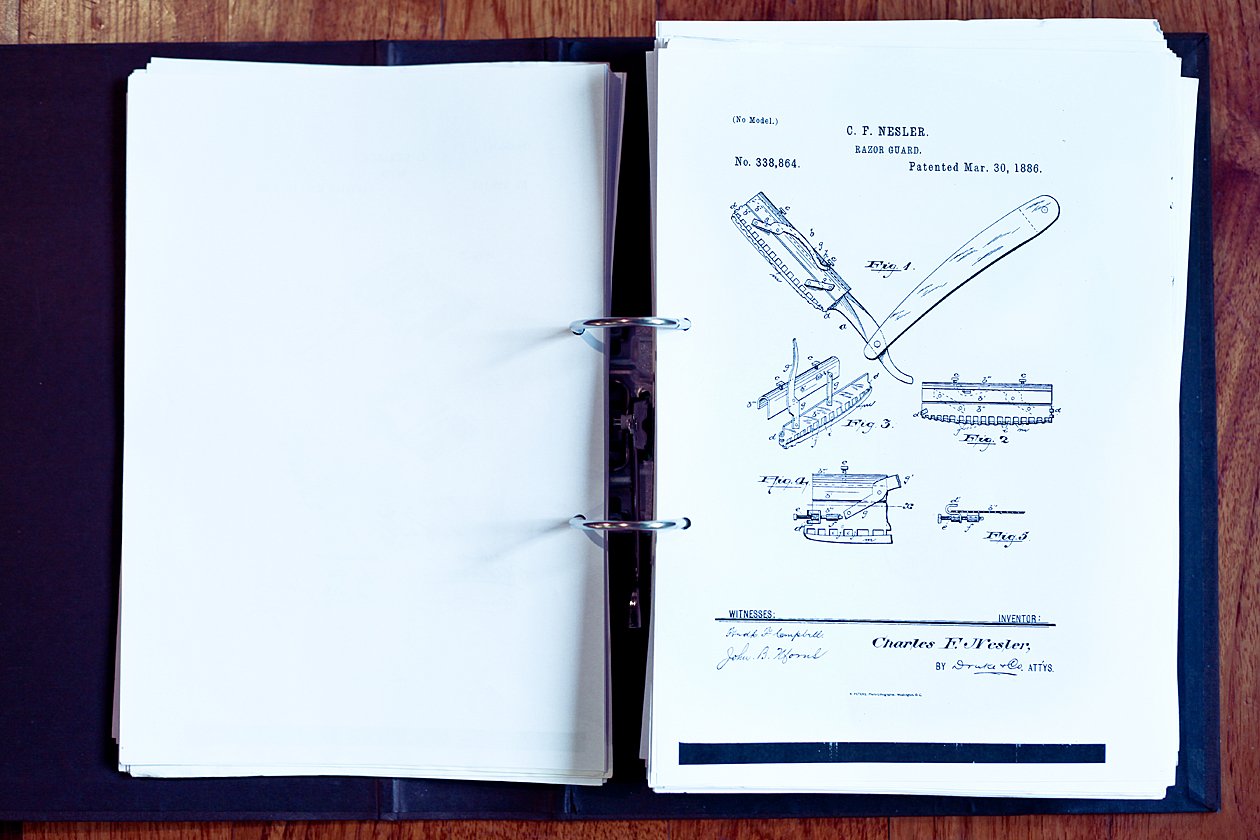 (No Model.)
C. F. NESLER.
RAZOR GUARD.
No. 338,864.
Patented Mar. 30, 1886.
Fig. 1.
Fig. 3.
Fig. 2
Fig. 4.
Fig. 5
WITNESSES:
INVENTOR:
Campbell
Charles F. Nesler,
John B.
BY Drake & Co. ATT'YS.